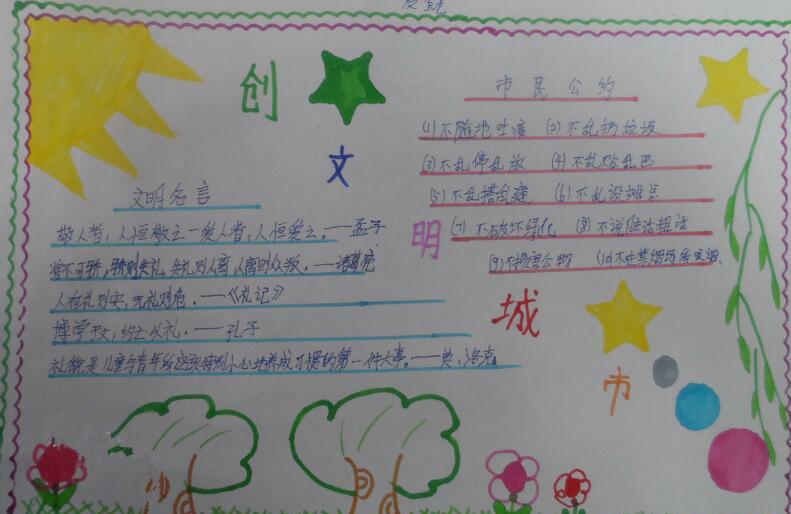 创
文
明
城
市
文明名言
敬人者,人恒敬之一爱人者,人恒爱之。——孟子
将不可骄,骄则失礼,失礼则人离,人离则众叛。——诸葛亮
人有礼则安,无礼则危。——《礼记》
博学于文,约之以礼。——孔子
礼貌是儿童与青年所应该特别小心地养成习惯的第一件大事。——英、洛克
市民公约
(1)不随地吐痰 (2)不乱扔垃圾
(3)不乱停乱放 (4)不乱贴乱画
(5)不乱搭乱建 (6)不乱设摊点
(7)不破坏绿化 (8)不说脏话粗话
(9)不损害公物 (10)不在禁烟场所吸烟